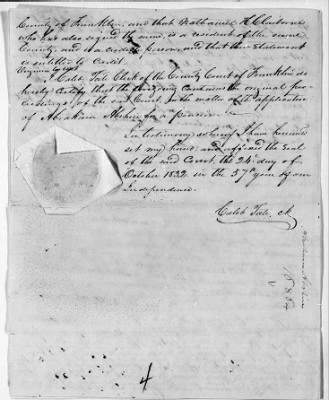 County of Franklin, and that Nathaniel H Claiborne
who has also signed the same, is a resident of the same
County, and is a credible person, and that their statement
is entitled to credit.
Virginia to wit
I Caleb Tate Clerk of the County Court of Franklin do
hereby Certify that the foregoing contains the original pro-
ceedings of the said Court. In the matter of the application
of Abraham for a pension.
In testimony whereof I have hereunto
set my hand and affixed the Seal
of the said Court, the 24 day of
October 1832 in the 57th year of our
independence.
Caleb Tate, Ck
4